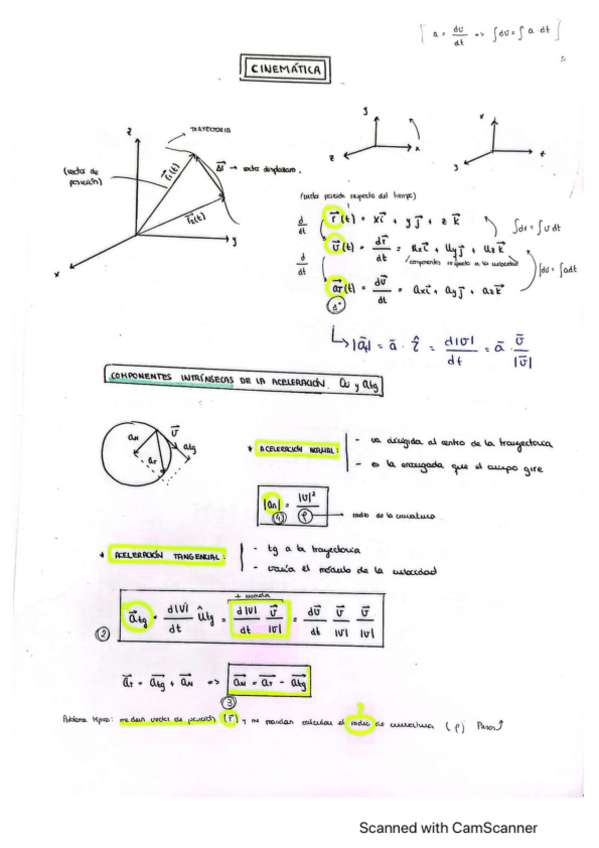 [ a = dv/dt => ∫dv = ∫a·dt ]
CINEMÁTICA
TRAYECTORIA
z
y
x
(vector de posición)
r₁(t)
r₂(t)
Δr → vector desplazam.
y
x
z
x
z
y
(vector posición respecto del tiempo)
d/dt
r⃗(t) = x i⃗ + y j⃗ + z k⃗
∫dr = ∫v dt
v⃗(t) = dr⃗/dt = vx i⃗ + vy j⃗ + vz k⃗
(componentes respecto a la velocidad
d/dt
∫dv = ∫adt
a⃗T(t) = dv⃗/dt = ax i⃗ + ay j⃗ + az k⃗
|a⃗t| = a⃗ · τ̂ = d|v|/dt = a⃗ · v⃗/|v⃗|
COMPONENTES INTRÍNSECAS DE LA ACELERACIÓN. aN y atg
aN
v⃗
atg
aT
* ACELERACIÓN NORMAL:
- va dirigida al centro de la trayectoria
- es la encargada que el cuerpo gire
|an| = |v|²/ρ → radio de la curvatura
④
* ACELERACIÓN TANGENCIAL:
- tg a la trayectoria
- varía el módulo de la velocidad
+ usada
② a⃗tg = d|v|/dt ûtg = d|v|/dt v⃗/|v| = dv⃗/dt v⃗/|v| v⃗/|v|
a⃗T = a⃗tg + a⃗N => a⃗N = a⃗T - a⃗tg
③
Problema típico: me dan vector de posición (r⃗) y me mandan calcular el radio de curvatura (ρ) Pasos↑
?
Scanned with CamScanner